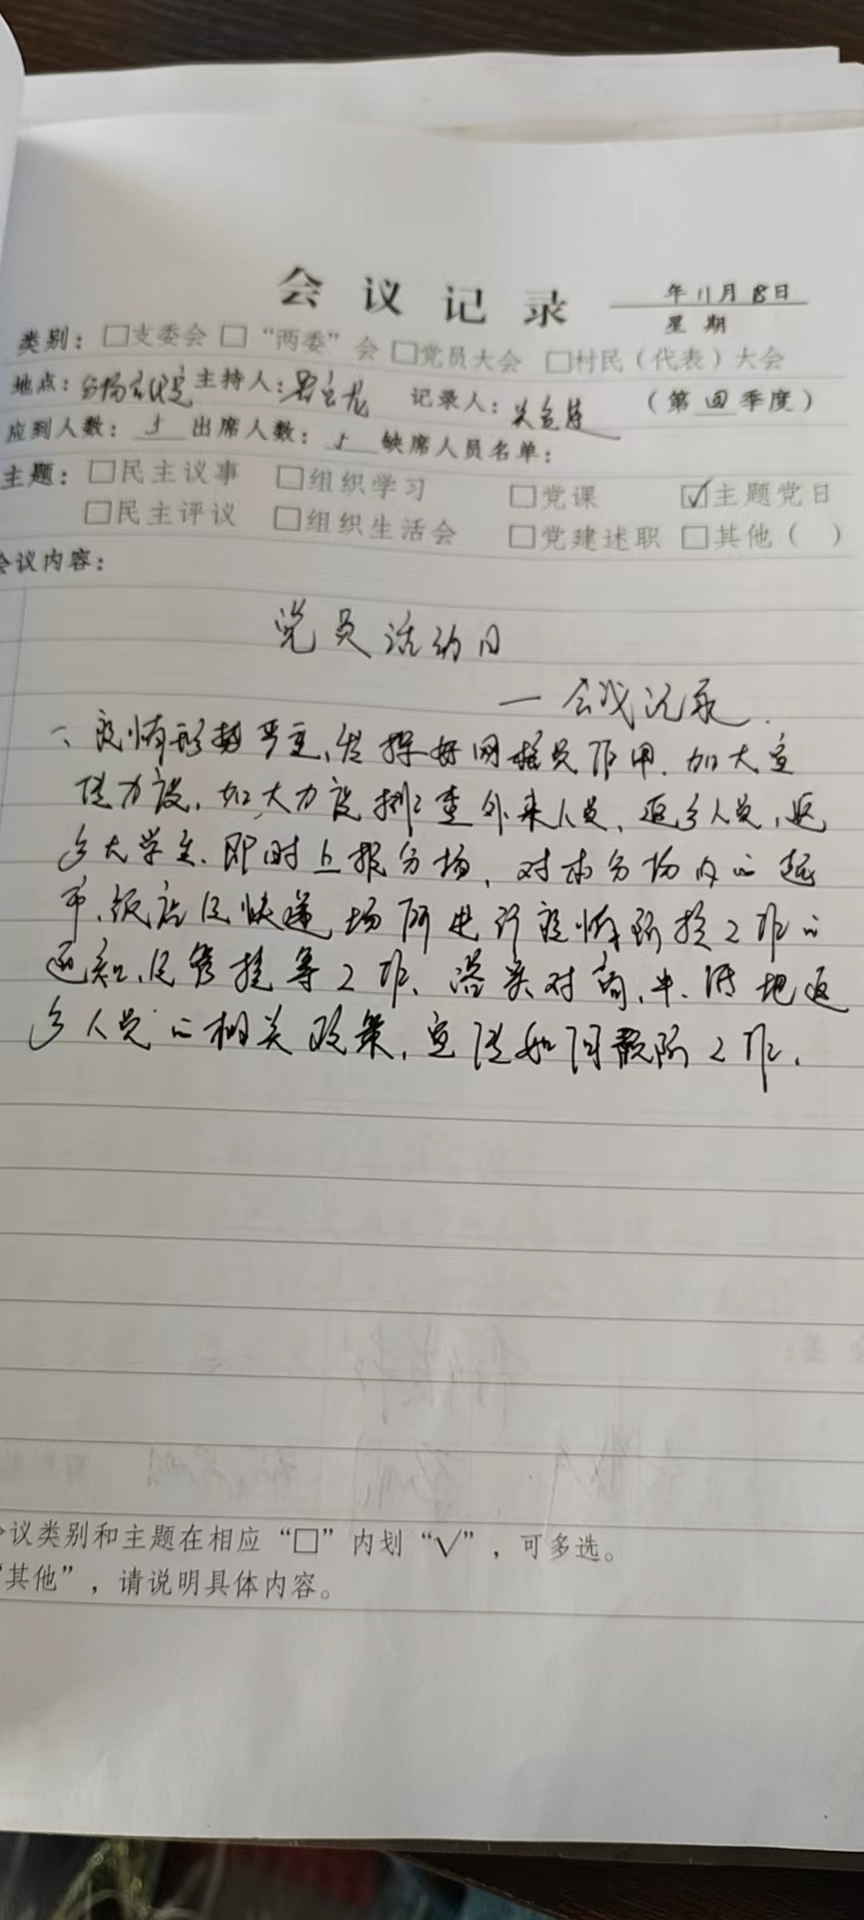 会议记录 年11月18日
星期
类别：□支委会 □“两委”会 □党员大会 □村民（代表）大会
地点：分场会议室 主持人： 记录人： （第四季度）
应到人数：5 出席人数：5 缺席人员名单：
主题：□民主议事 □组织学习 □党课 ☑主题党日
□民主评议 □组织生活会 □党建述职 □其他（ ）
会议内容：
党员活动日
一会议记录.
一、疫情形势严重，发挥好网格员作用.加大宣
传力度，加大力度排查外来人员，返乡人员，返
乡大学生.即时上报分场，对本分场内的超
市、饭店及快递场所进行疫情防控工作的
通知及管控等工作.落实对高、中、低地返
乡人员的相关政策，宣传如何预防工作.
会议类别和主题在相应“□”内划“√”，可多选。
“其他”，请说明具体内容。